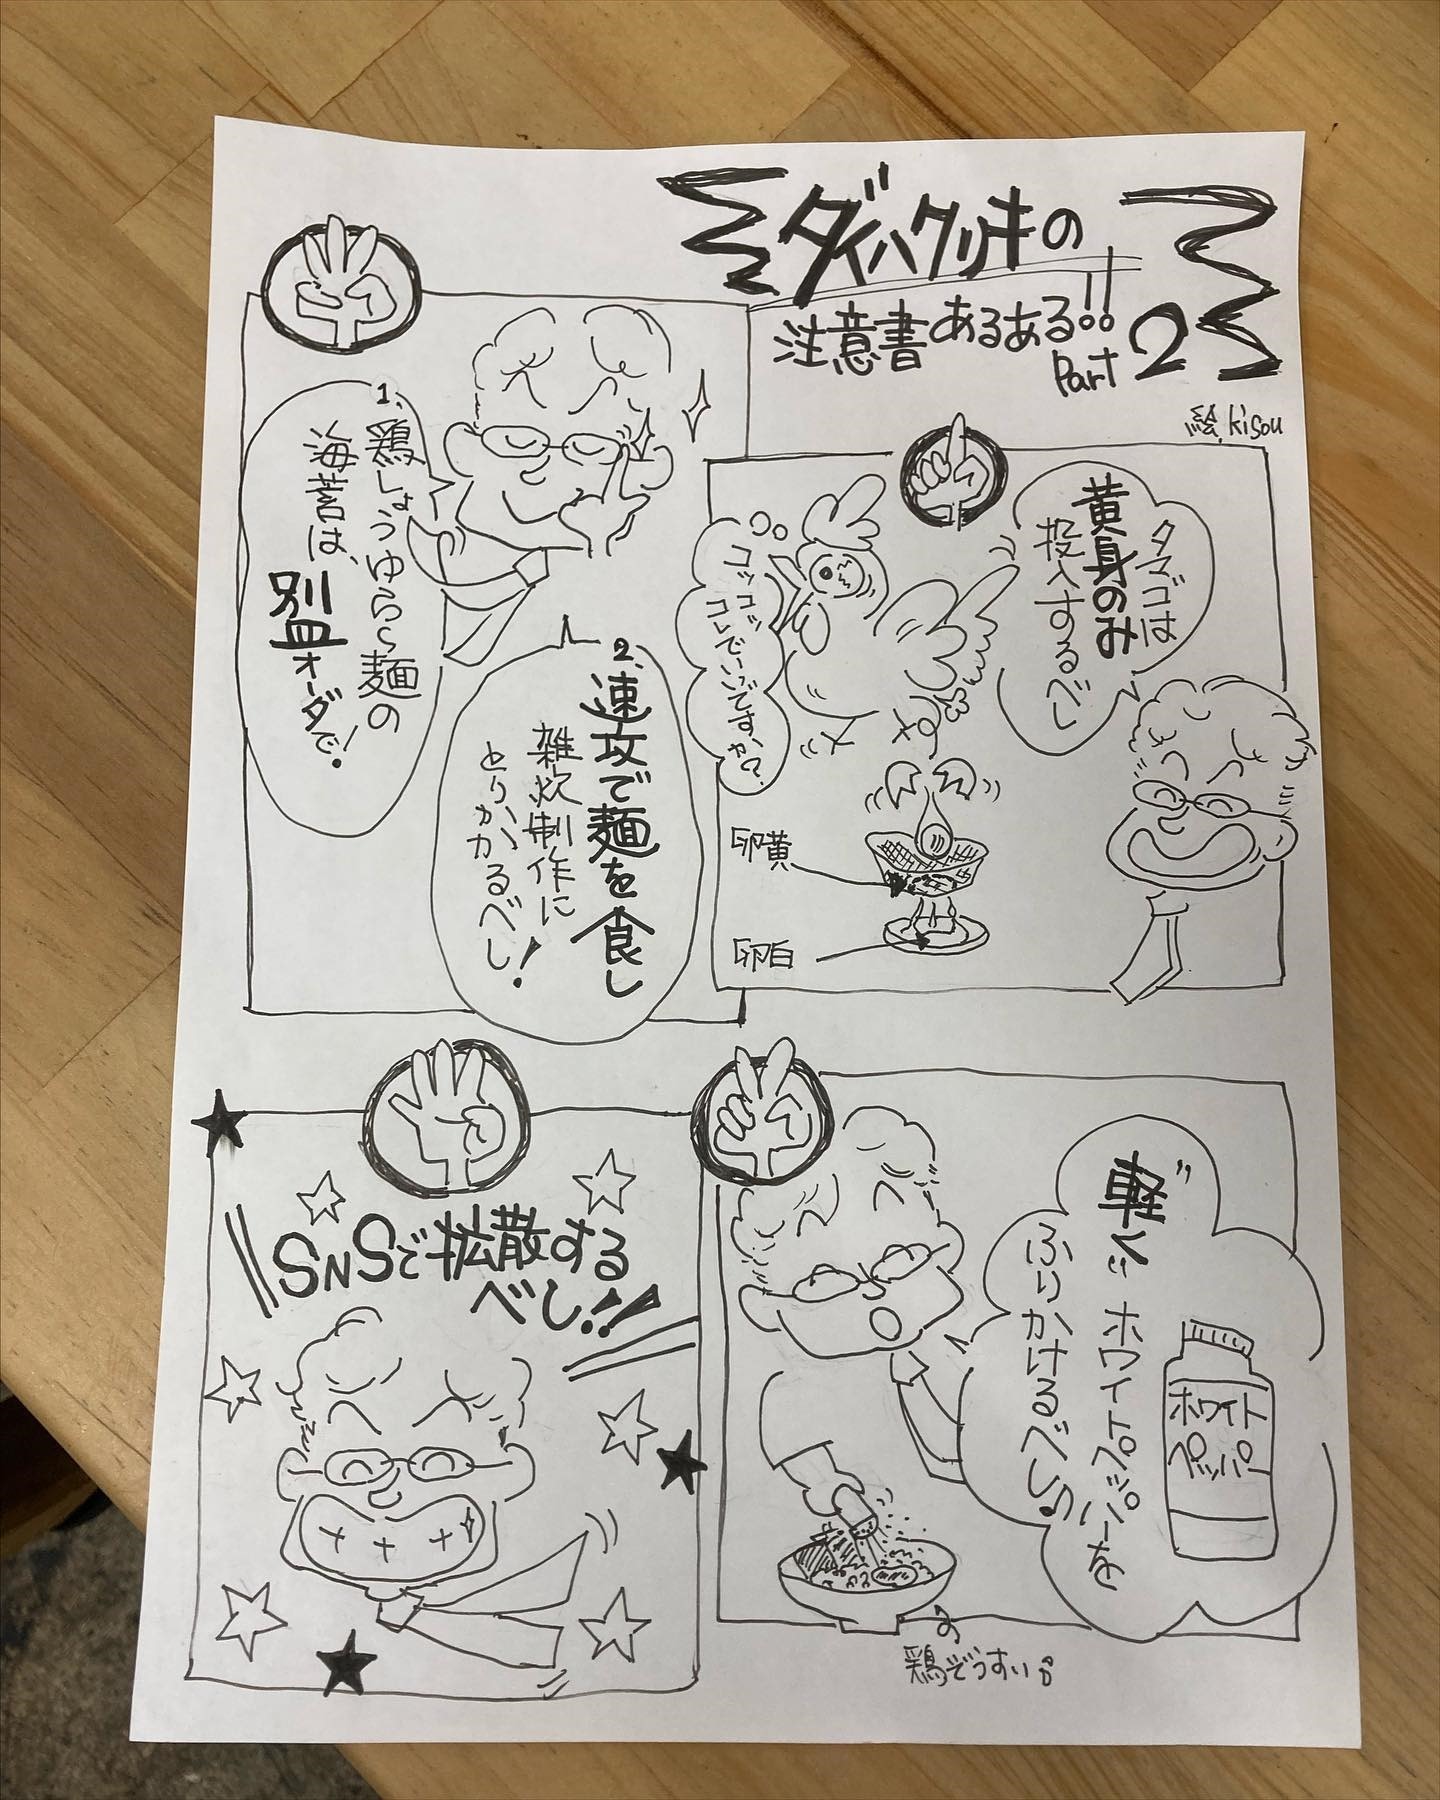 ダイハクリキの
注意書あるある!!
Part 2
絵.kisou
タマゴは
黄身のみ
投入するべし
コッコッ
コレでいいですか?
卵黄
卵白
1.鶏しょうゆらー麺の
海苔は、
別皿オーダーで!
2.速攻で麺を食し
雑炊制作に
とりかかるべし!
軽〜くホワイトペッパーを
ふりかけるべし♪
ホワイト
ペッパー
鶏ぞうすい
SNSで拡散する
べし!!